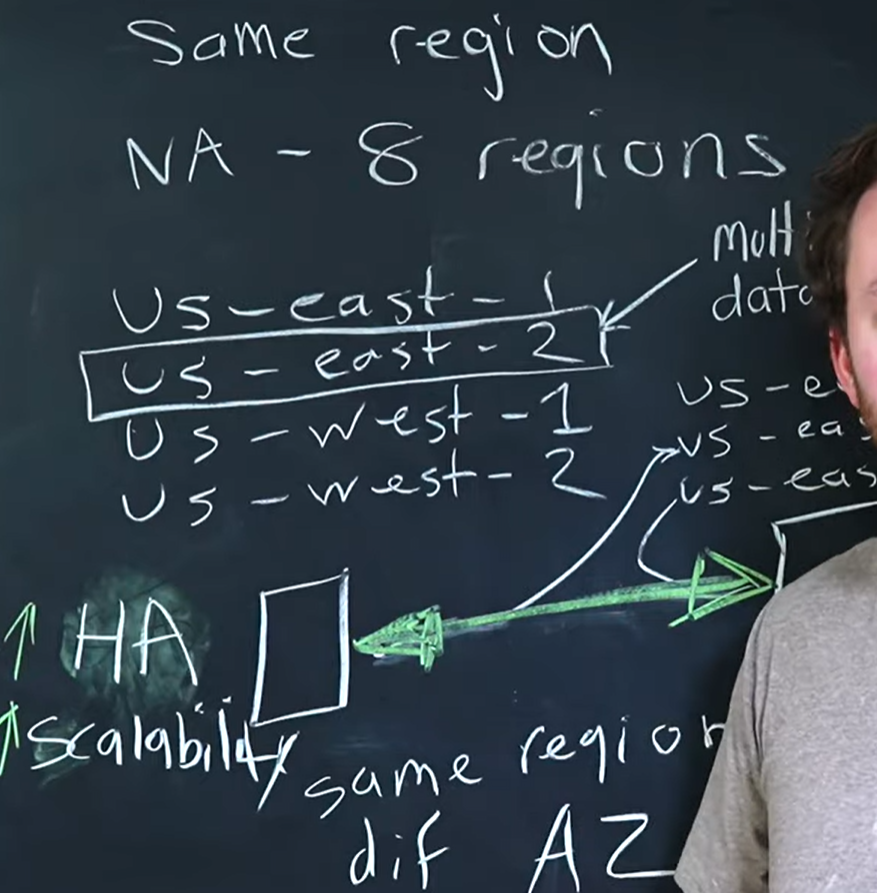 Same region
NA - 8 regions
US-east-1
US-east-2
US-west-1
US-west-2
US-e
US-eas
US-eas
HA
Scalability
same region
dif AZ